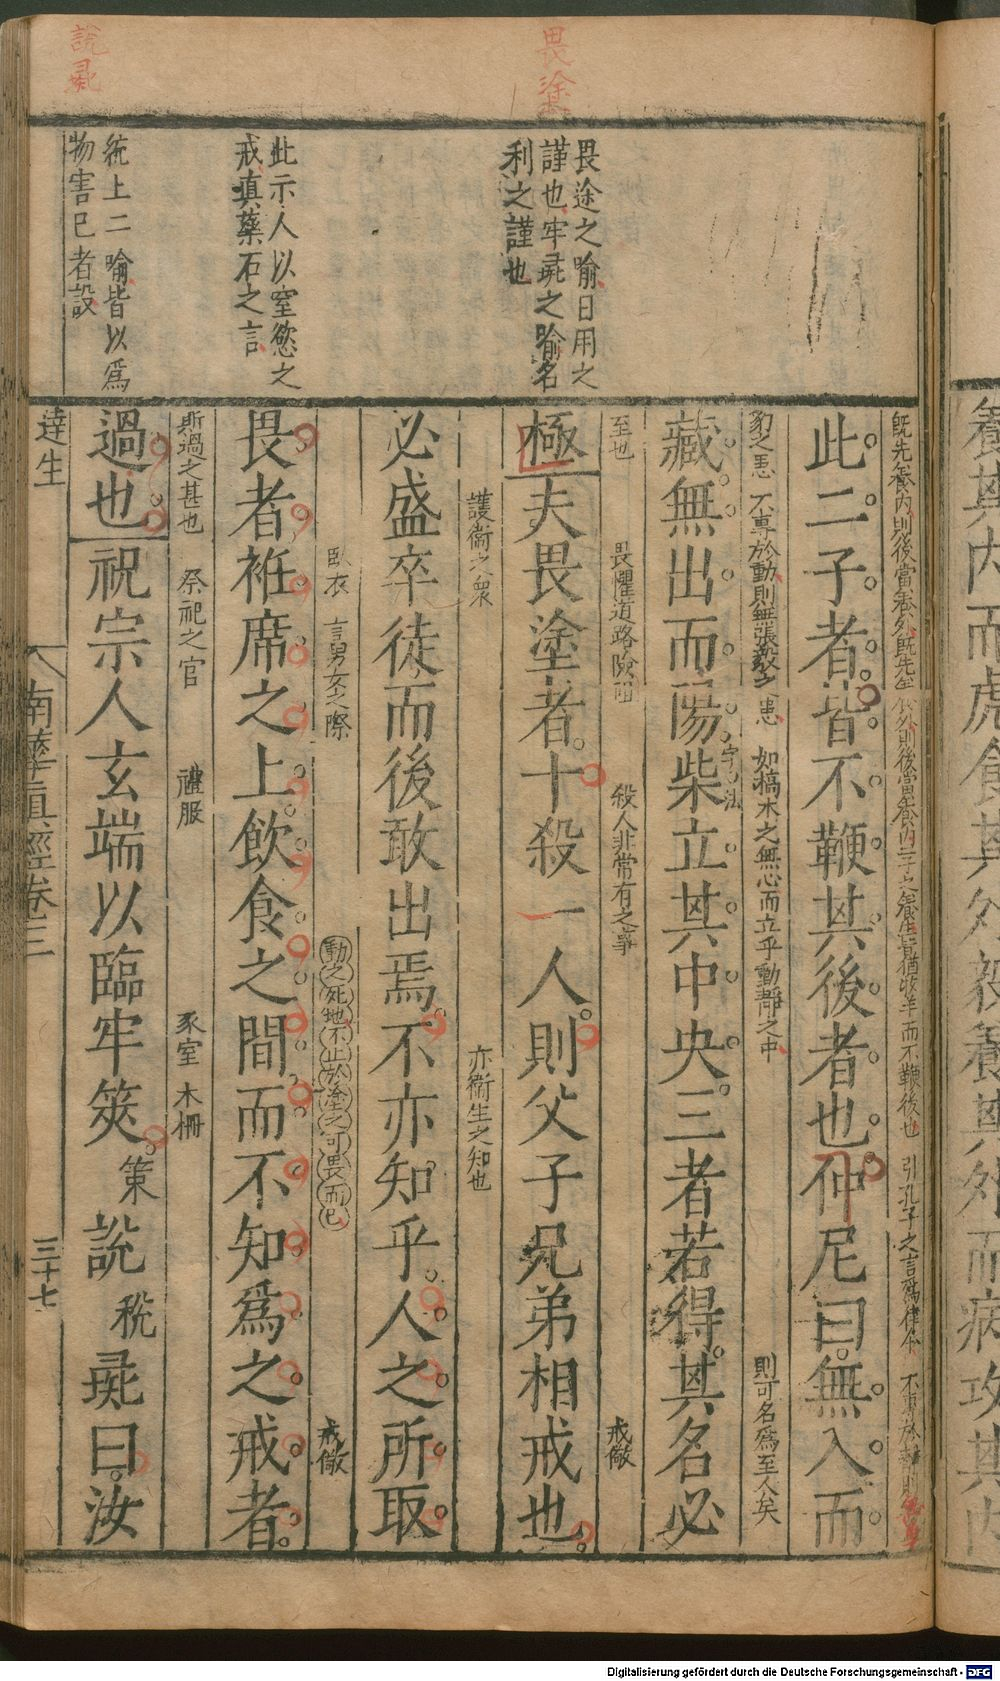 養其內而虎食其外毅養其外而病攻其內
畏塗
說彘
畏途之喻日用之
謹也牢彘之喻名
利之謹也
此示人以窒慾之
戒真藥石之言
統上二喻皆以為
物害已者設
既先養內則後當養外既先養外則後當養內二子之養生皆猶牧羊而不鞭後也 引孔子之言為律令 不專於靜則無單
此二子者皆不鞭其後者也仲尼曰無入而
豹之患 不專於動則無張毅之患 如槁木之無心而立乎動靜之中 則可名為至人矣
藏無出而陽柴立其中央三者若得其名必
字法
至也 畏懼道路險阻 殺人非常有之事 戒儆
極夫畏塗者十殺一人則父子兄弟相戒也
護衛之眾 亦衛生之知也
必盛卒徒而後敢出焉不亦知乎人之所取
臥衣 言男女之際 動之死地不止於塗之可畏而已 戒儆
畏者袵席之上飲食之間而不知為之戒者
斯過之甚也 祭祀之官 禮服 豕室 木柵
過也祝宗人玄端以臨牢筴策說稅彘曰汝
達生 南華真經卷三 三十七
Digitalisierung gefördert durch die Deutsche Forschungsgemeinschaft - DFG